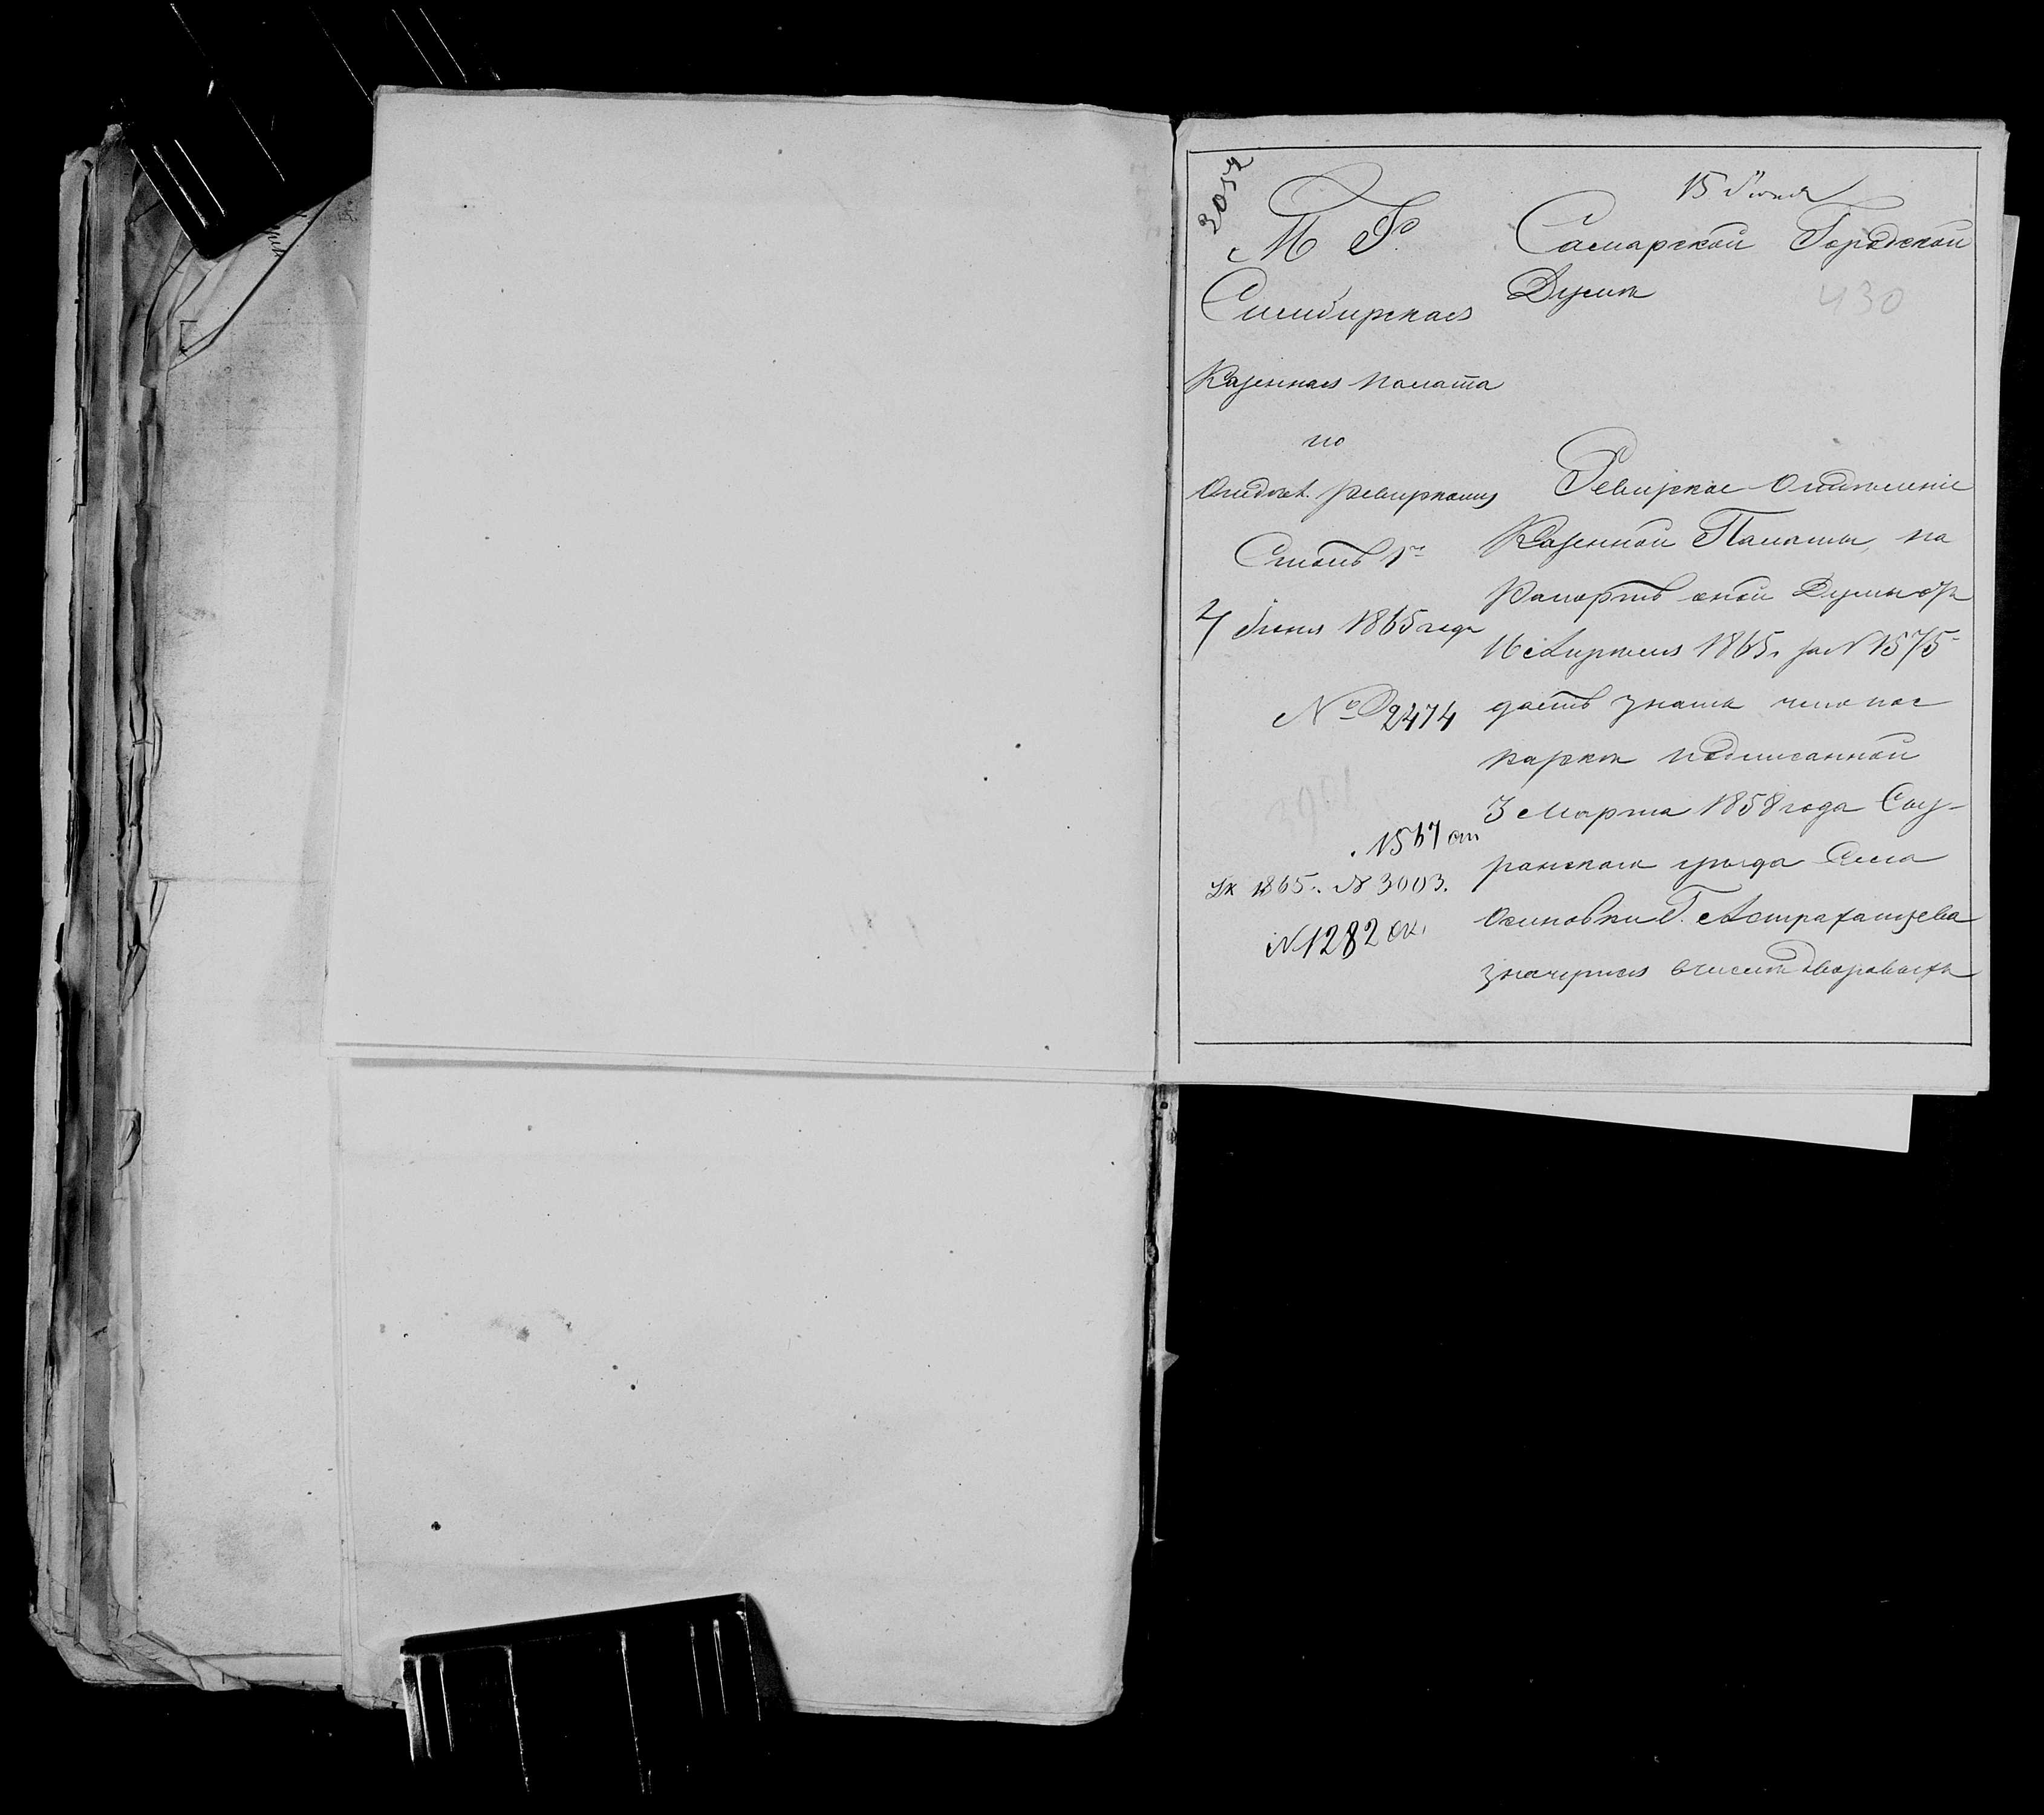 3052
М Ф.
Симбирская
Казенная палата
по
Отделен. Ревизскому
Столъ 1й
7 Июня 1865 года
№ 2474
1567 от
1865. № 3003.
№ 1282
15 Июня
Самарской Городской
Думѣ
430
Ревизское Отдѣленіе
Казенной Палаты, на
Рапортъ оной Думы отъ
16 Апрѣля 1865 г. за № 1575
даетъ знать что по с
казкѣ подписанной
3 Марта 1858 года Сыз-
ранскаго уѣзда Села
Осиновки Г. Астраханцева
значутся въ числѣ дворовыхъ